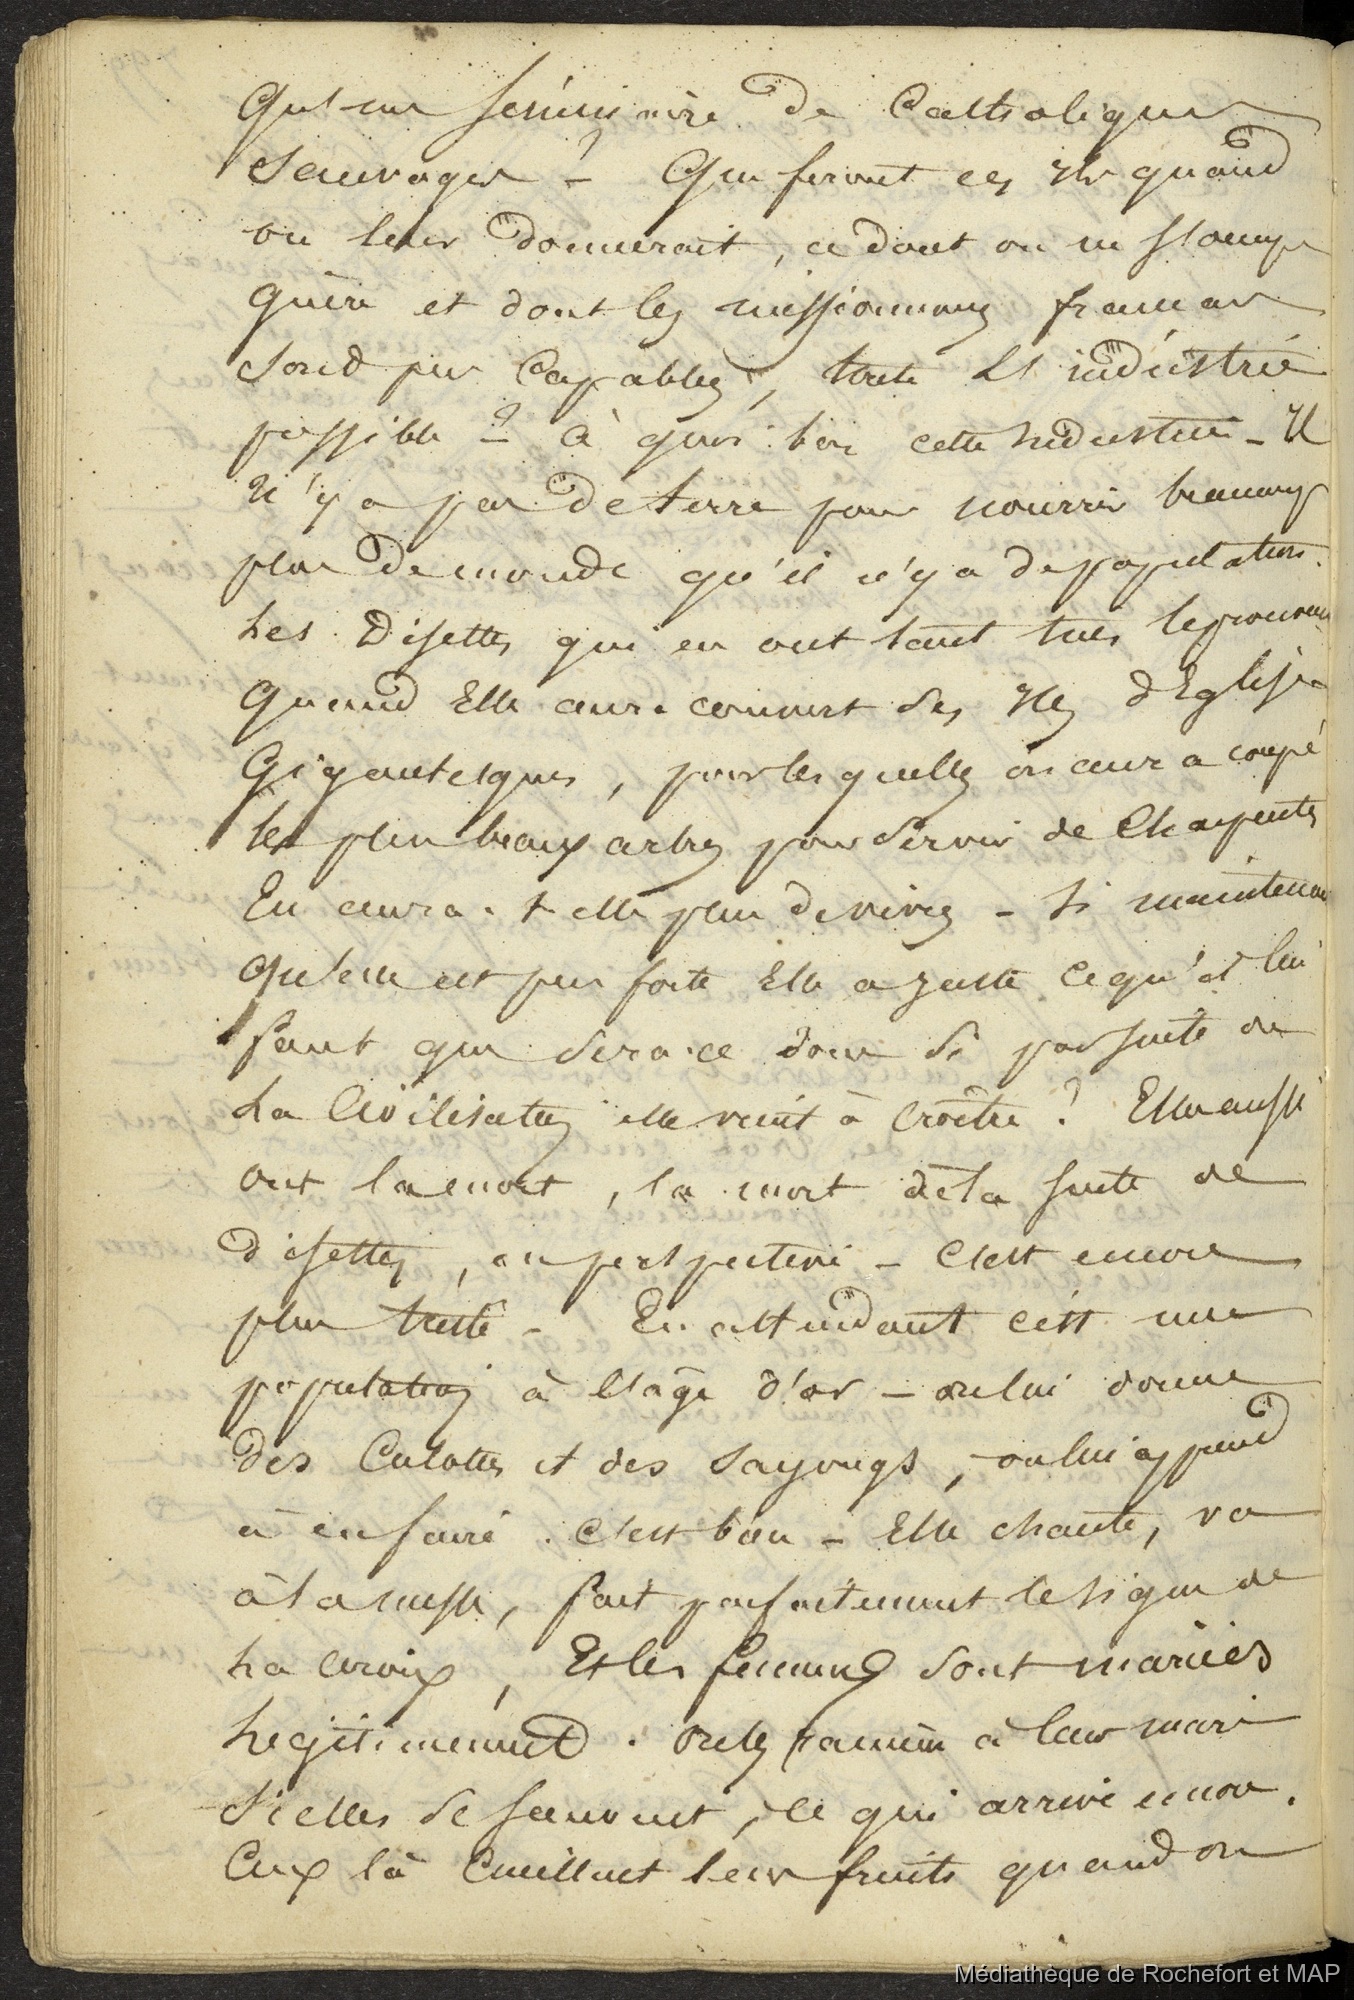 Qu'un séminaire de Catholiques
Sauvages ? - Que feront ces Iles quand
on leur donnerait, ce dont on ne s'occupe
Guère et dont les missionnaires francais
Sont peu Capables, toute L'industrie
possible ? - à quoi bon cette industrie - Il
N'y a pas de terre pour nourrir beaucoup
plus de monde qu'il n'y a de population.
Les Disettes qui en ont tant tués le prouvent
Quand Elle aura couvert ses Iles d'Eglises
Gigantesques, pour lesquelles on aura coupé
les plus beaux arbres pour Servir de Charpentes
En aura-t-elle plus de vivres - Si maintenant
Qu'elle est peu forte Elle a juste ce qu'il lui
faut que Sera-ce donc Si par suite de
La Civilisation elle vient à Croître ? Elles aussi
ont la mort, la mort de la suite de
disettes, en perspective - C'est encore
plus triste - En attendant c'est une
population à l'âge d'or - on lui donne
Des Culottes et des sayongs, on lui apprend
à en faire . C'est bon - Elle chante, va
à la messe, fait parfaitement le signe de
La Croix, Et les femmes sont mariées
Légitimement . On les ramène à leur mari
Si elles se sauvent, ce qui arrive encore.
Ceux là Cueillent leurs fruits quand on
Médiathèque de Rochefort et MAP